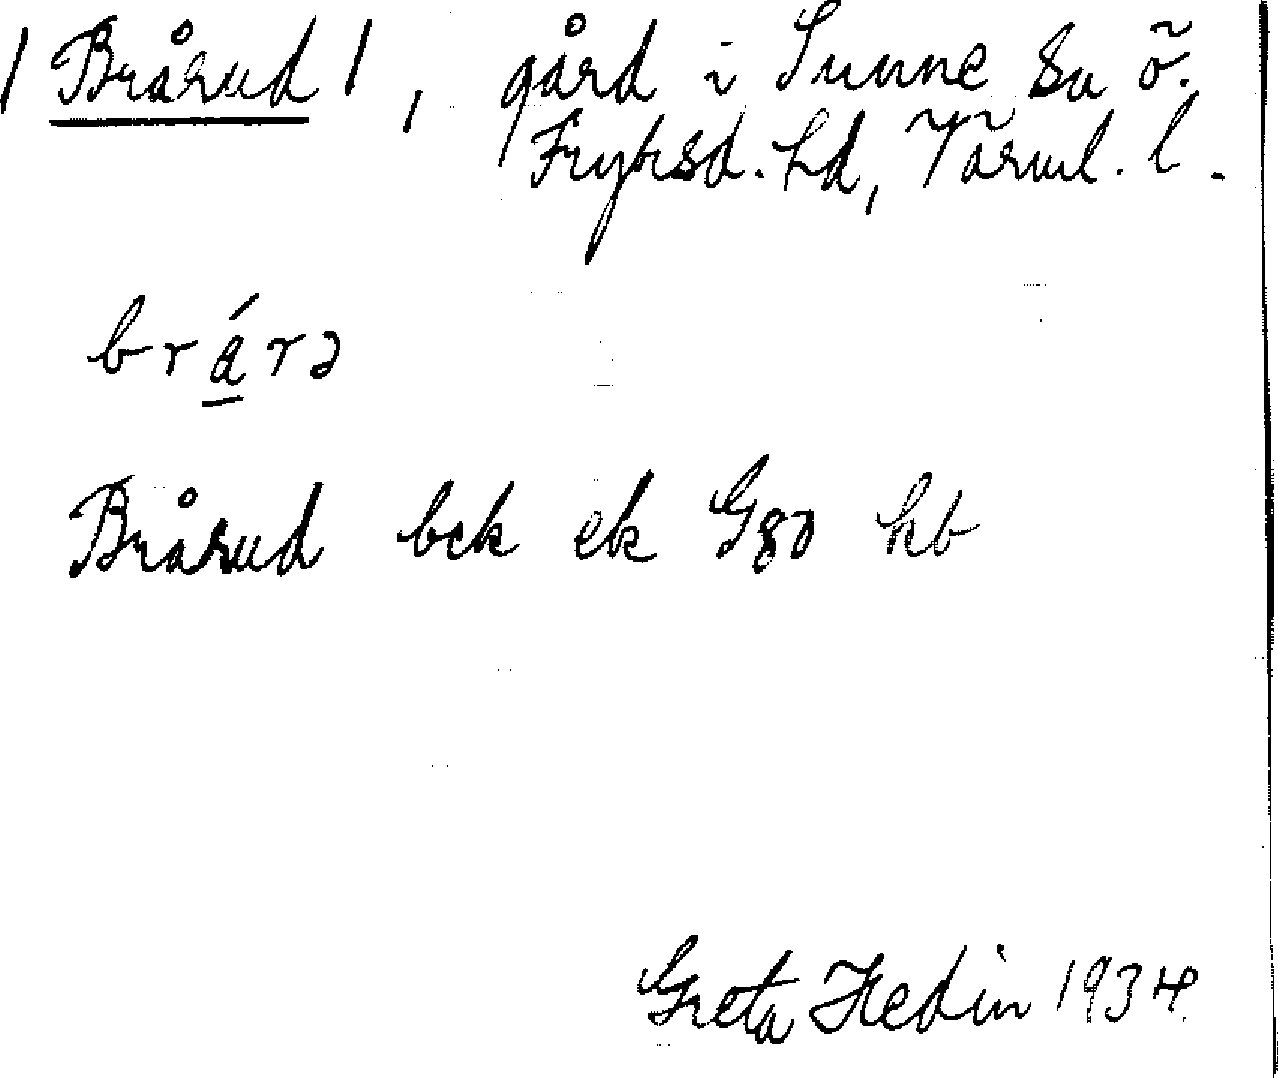 / Bråsud /, gård i Sunne sn ö.
Fryksd. hd, Värml. l.
brárə
Bråsud bck ek Gso kb
Greta Hedin 1934